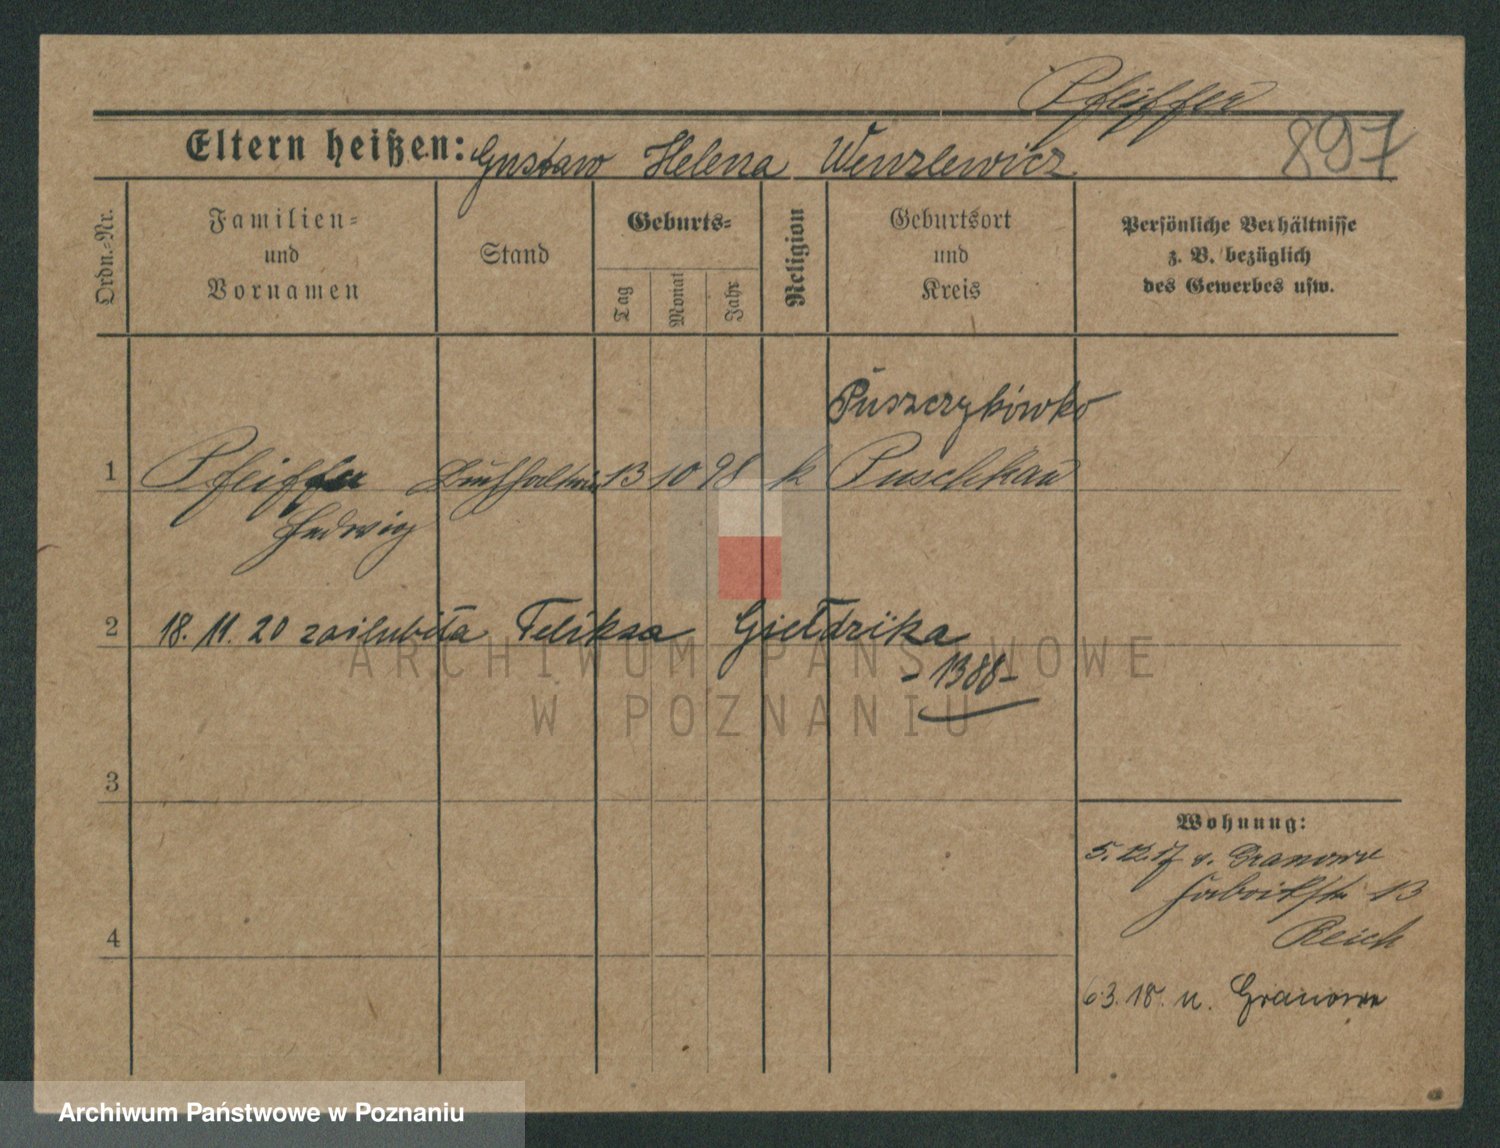 Pfeiffer
Eltern heißen: Gustaw Helena Wenzlewicz
897
Ordn.-Nr.
Familien-
und
Vornamen
Stand
Geburts-
Tag
Monat
Jahr
Religion
Geburtsort
und
Kreis
Persönliche Verhältnisse
z. B. bezüglich
des Gewerbes usw.
Puszczykówko
1 Pfeiffer Buchhalterin 13 10 98 k Puschkau
Hedwig
2 18. 11. 20 zaślubiła Feliksa Giełdzika
- 1388 -
ARCHIWUM PAŃSTWOWE
W POZNANIU
3
Wohnung:
5. 12. 17 v. Granowo
Fabrikstr 13
Reich
4
6.3.18. n. Granowo
Archiwum Państwowe w Poznaniu